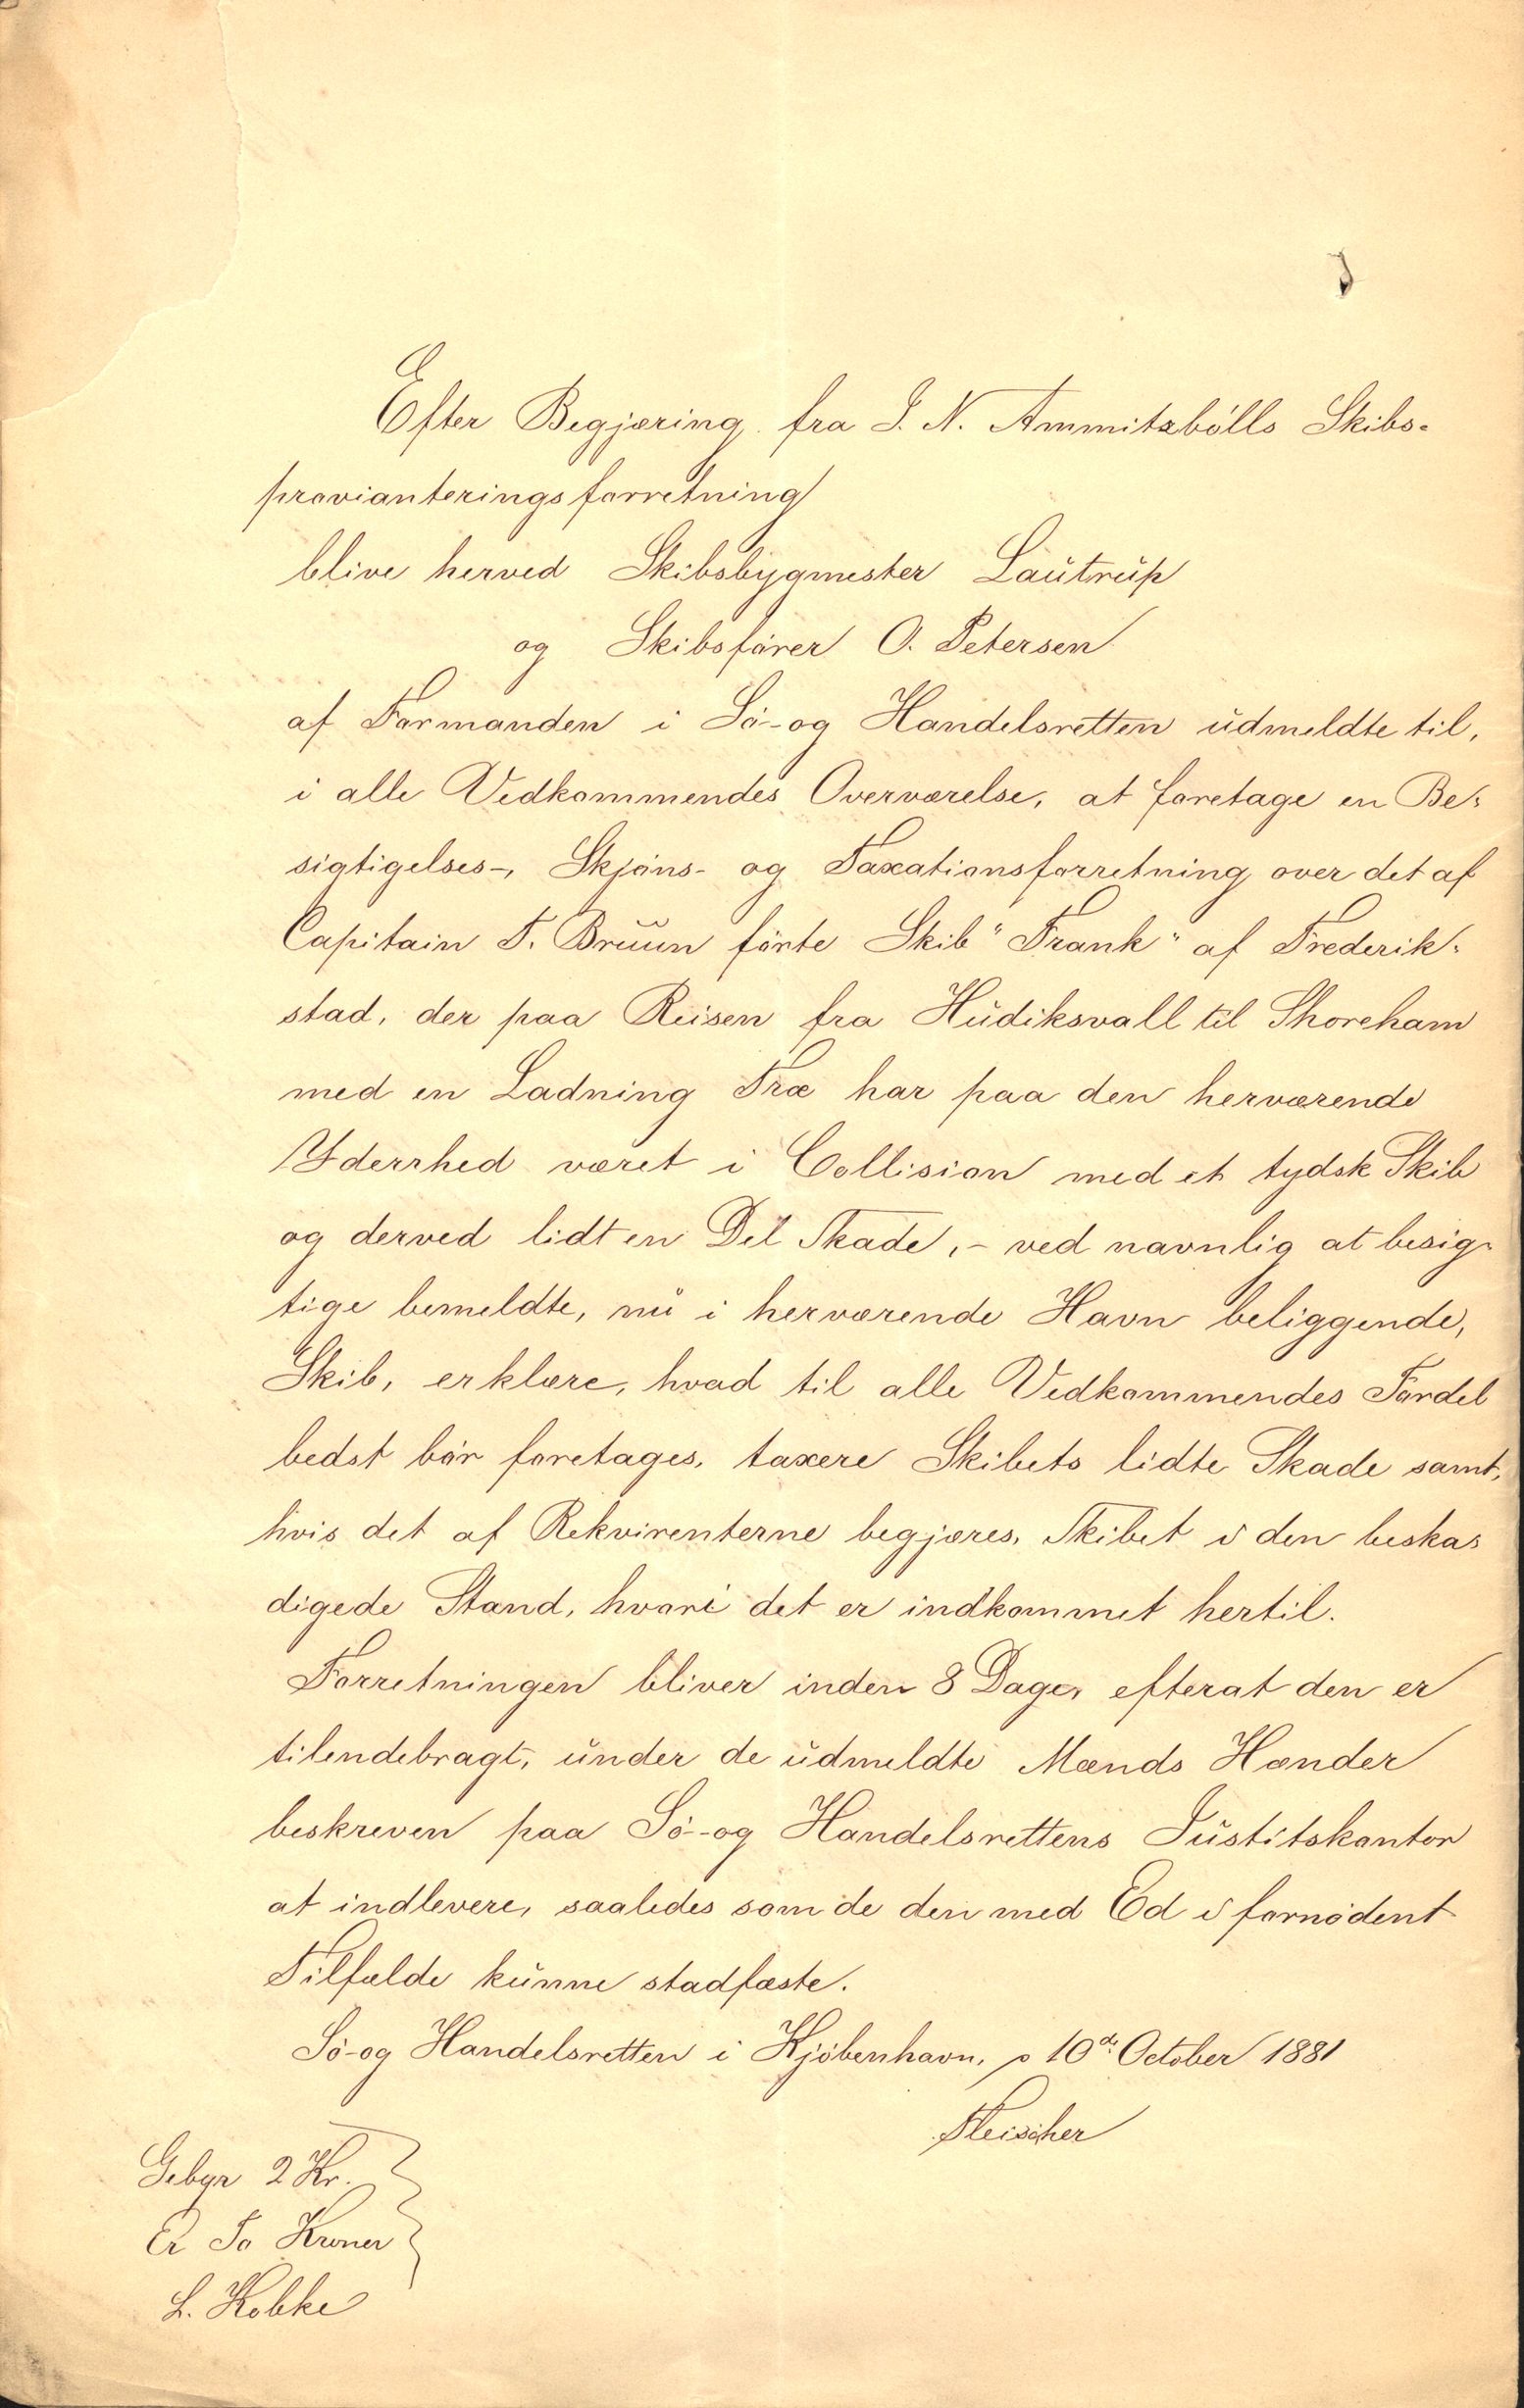 Efter Begjæring fra J. N. Ammitzbölls Skibs-
provianteringsforretning
blive herved Skibsbygmester Lautrup
og Skibsförer O. Petersen
af Formanden i Sö- og Handelsretten udmeldte til,
i alle Vedkommendes Overværelse, at foretage en Be-
sigtigelses-, Skjöns- og Taxationsforretning over det af
Capitain T. Bruun förte Skib "Frank" af Frederik-
stad, der paa Reisen fra Hudiksvall til Shoreham
med en Ladning Træ har paa den herværende
Yderrhed været i Collision med et tydsk Skib
og derved lidt en Del Skade, - ved navnlig at besig-
tige bemeldte, nu i herværende Havn beliggende,
Skib, erklære, hvad til alle Vedkommendes Fordel
bedst bör foretages, taxere Skibets lidte Skade samt,
hvis det af Rekvirenterne begjæres, Skibet i den beska-
digede Stand, hvori det er indkommet hertil.
Forretningen bliver inden 8 Dage, efterat den er
tilendebragt, under de udmeldte Mænds Hænder
beskreven paa Sö- og Handelsrettens Justitskontor
at indlevere, saaledes som de den med Ed i fornödent
Tilfælde kunne stadfæste.
Sö- og Handelsretten i Kjöbenhavn, 10de October 1881
Fleischer
Gebyr 2 Kr.
Er To Kroner
L. Kobke